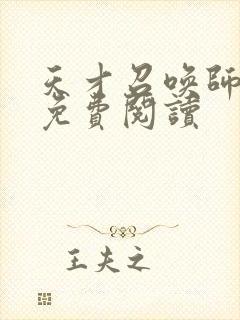 天才召喚師
免費閱讀
王夫之